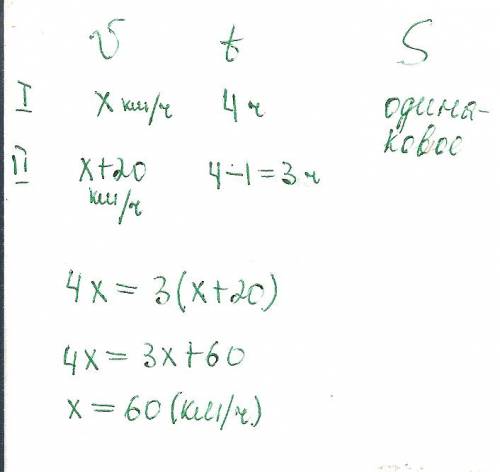 v t S
I x км/ч 4 ч одина-
ковое
II x+20 4-1=3 ч
км/ч
4x = 3(x+20)
4x = 3x+60
x = 60 (км/ч.)